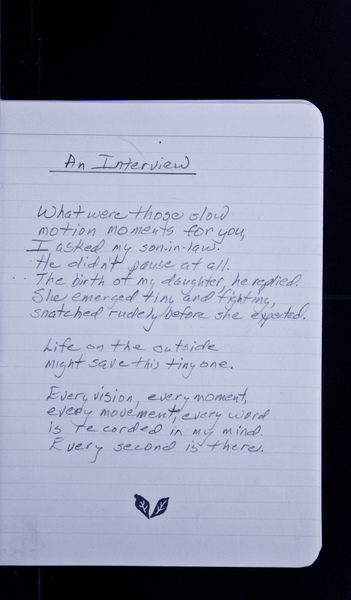 An Interview
What were those slow
motion moments for you,
I asked my son-in-law.
He didn't pause at all.
The birth of my daughter, he replied.
She emerged tiny and fighting,
snatched rudely before she expected.
Life on the outside
might save this tiny one.
Every vision, every moment,
every movement, every word
is recorded in my mind.
Every second is there.